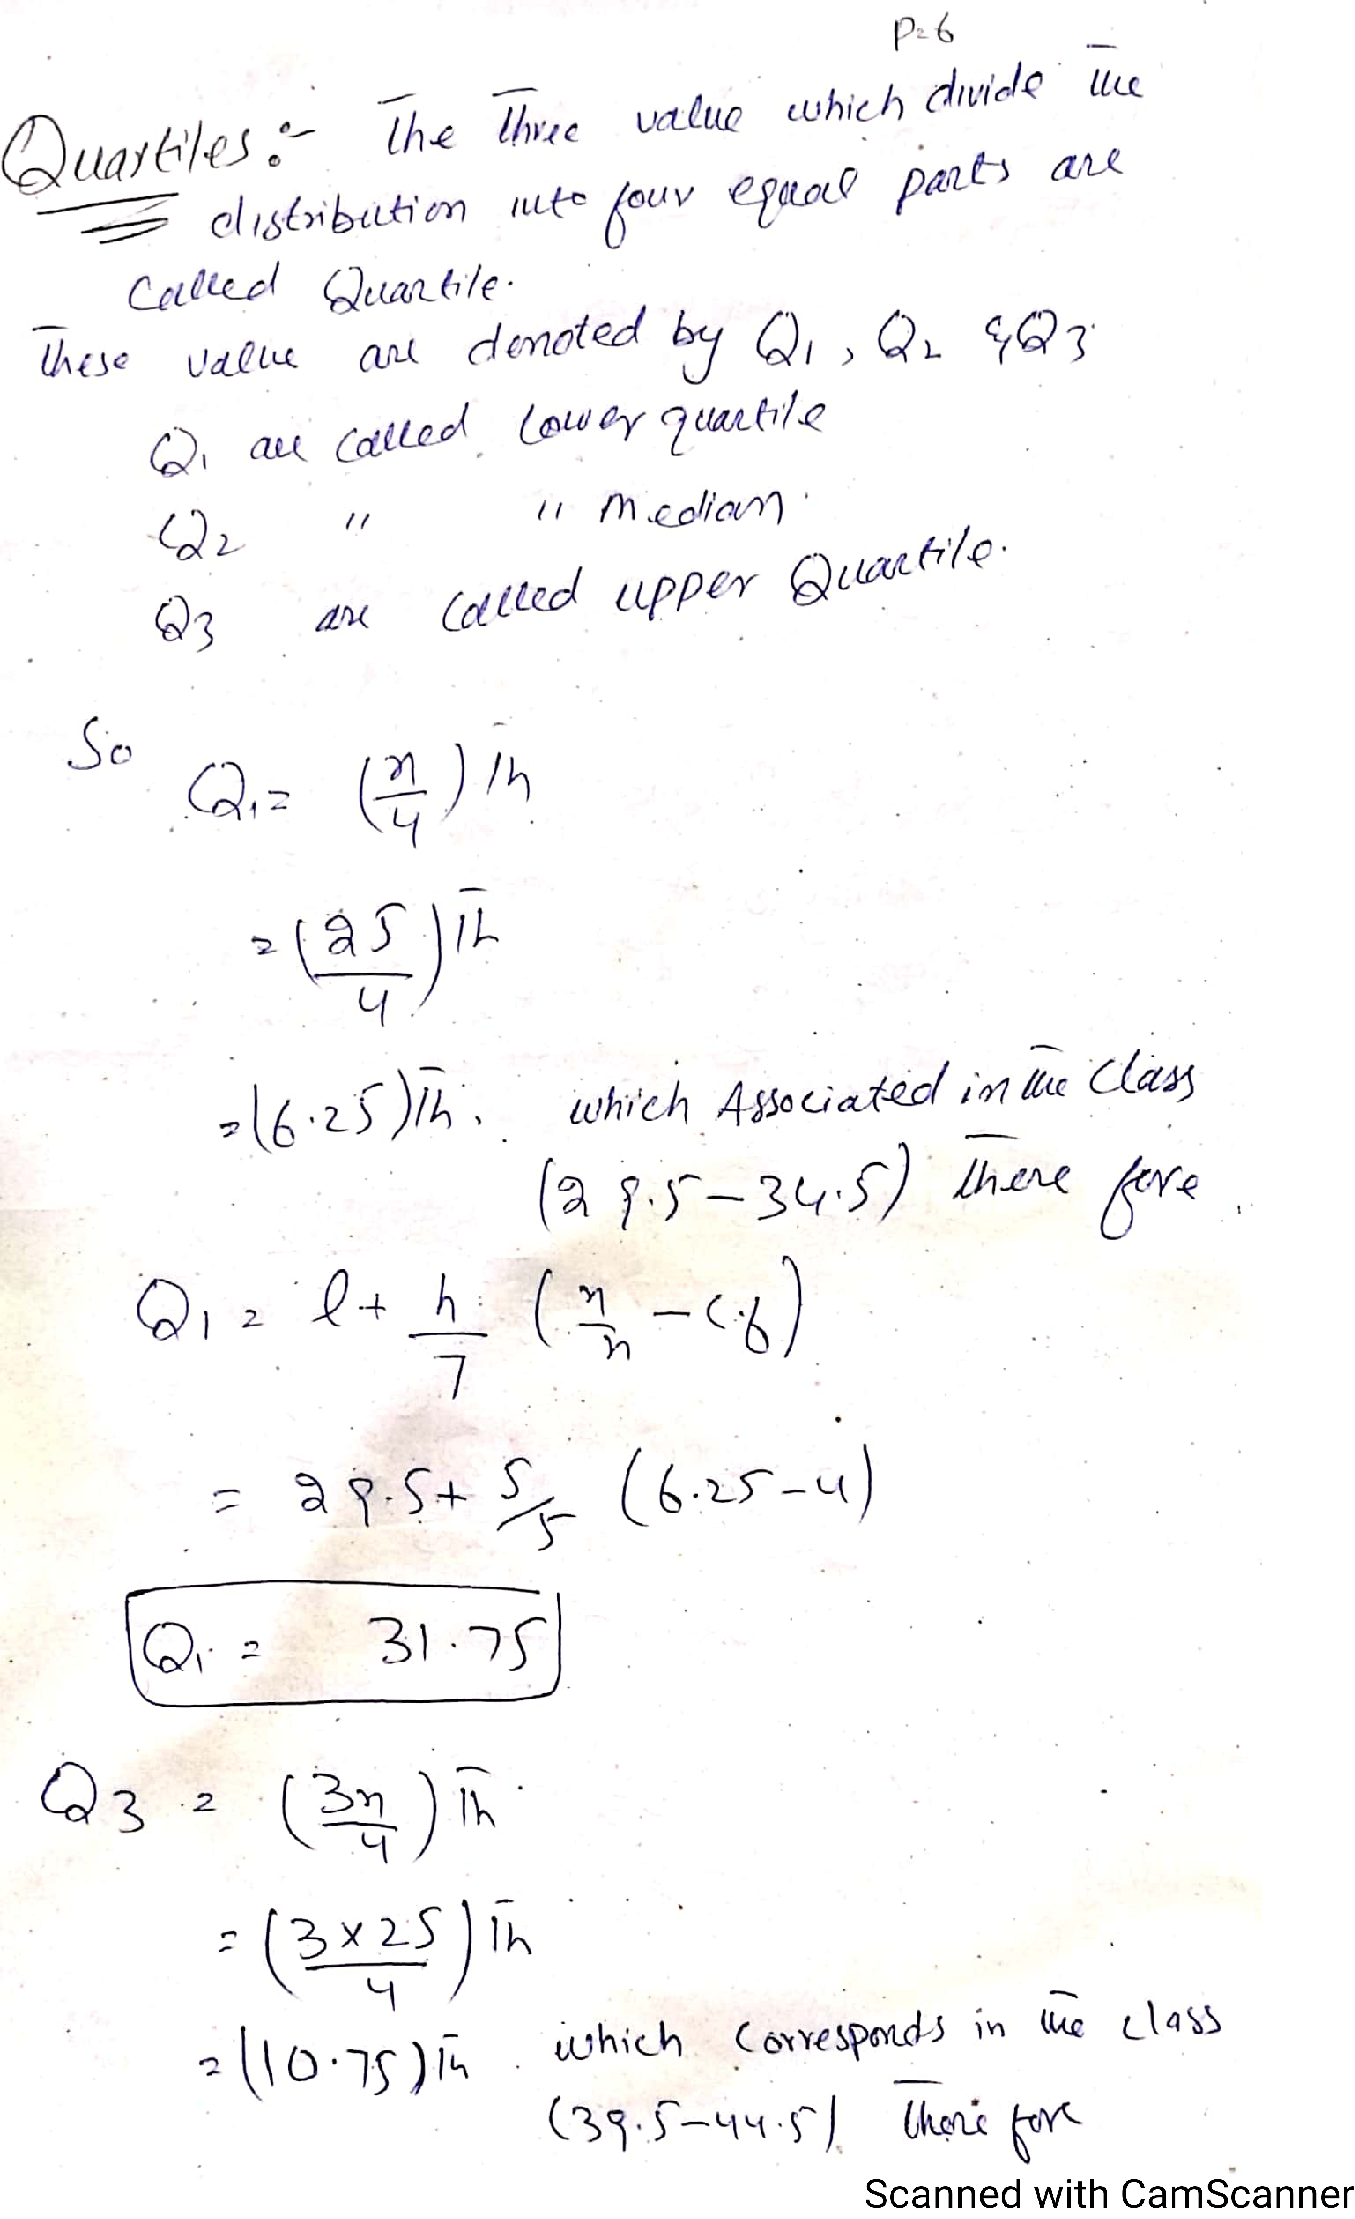 P=6
Quartiles:- The three value which divide the
distribution into four equal parts are
Called Quartile.
These value are denoted by Q1, Q2 & Q3
Q1 are called lower quartile
Q2 " " Median.
Q3 are called upper Quartile.
So Q1 = (n/4) th
= (25/4) th
= (6.25) th. which Associated in the Class
(29.5-34.5) there fore
Q1 = l + h/7 (n/n - c.f)
= 29.5 + 5/5 (6.25-4)
Q1 = 31.75
Q3 = (3n/4) th
= (3x25/4) th
= (10.75) th. which corresponds in the class
(39.5-44.5) there fore
Scanned with CamScanner